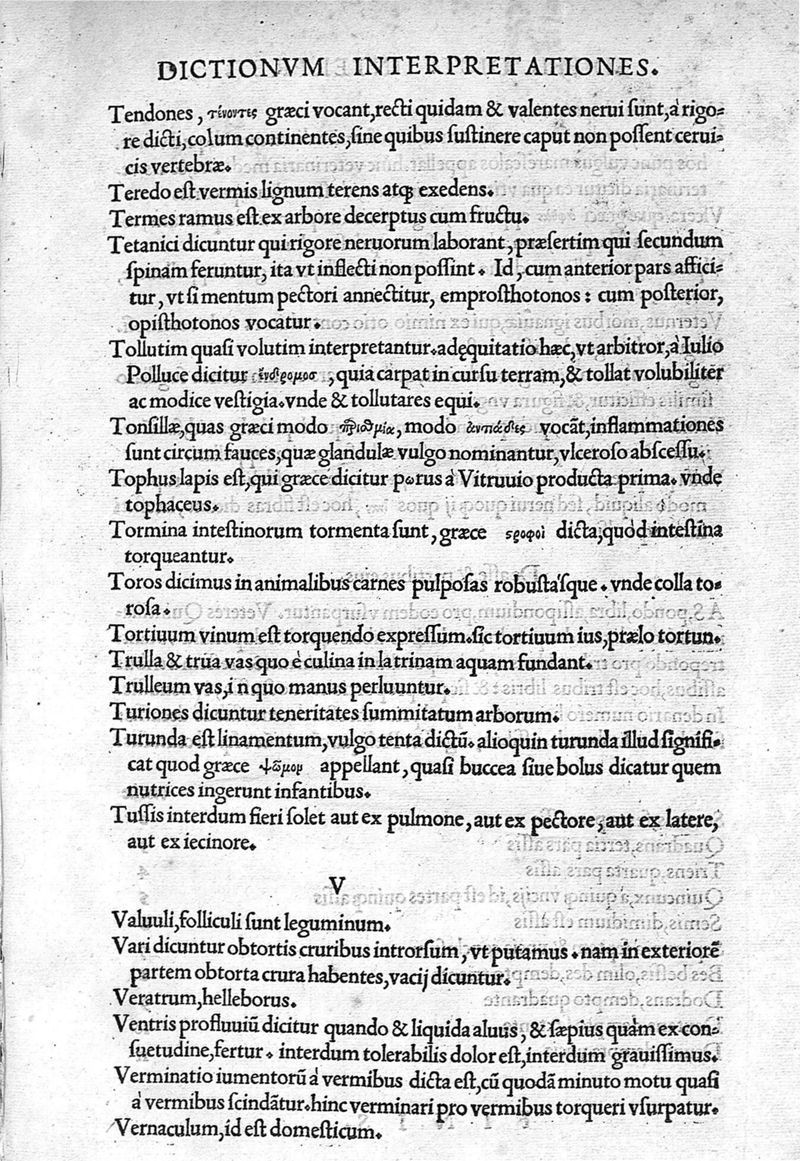 DICTIONVM INTERPRETATIONES.
Tendones, τένοντες græci vocant, recti quidam & valentes nerui sunt, à rigo-
re dicti, colum continentes, sine quibus sustinere caput non possent cerui-
cis vertebræ.
Teredo est vermis lignum terens atq; exedens.
Termes ramus est ex arbore decerptus cum fructu.
Tetanici dicuntur qui rigore neruorum laborant, præsertim qui secundum
spinam feruntur, ita vt inflecti non possint. Id, cum anterior pars affici-
tur, vt si mentum pectori annectitur, emprosthotonos: cum posterior,
opisthotonos vocatur.
Tollutim quasi volutim interpretantur. adęquitatio hæc, vt arbitror, à Iulio
Polluce dicitur, quia carpat in cursu terram, & tollat volubiliter
ac modice vestigia. vnde & tollutares equi.
Tonsillæ, quas græci modo, modo vocãt, inflammationes
sunt circum fauces, quæ glandulæ vulgo nominantur, vlceroso abscessu.
Tophus lapis est, qui græce dicitur pωrus à Vitruuio producta prima. vnde
tophaceus.
Tormina intestinorum tormenta sunt, græce ϛροφοι dicta, quòd intestina
torqueantur.
Toros dicimus in animalibus carnes pulposas robustásque. vnde colla to-
rosa.
Tortiuum vinum est torquendo expressum. sic tortiuum ius, prælo tortun.
Trulla & trua vas quo è culina in latrinam aquam fundant.
Trulleum vas, i n quo manus perluuntur.
Turiones dicuntur teneritates summitatum arborum.
Turunda est linamentum, vulgo tenta dictũ. alioquin turunda illud signifi-
cat quod græce ψῶμομ appellant, quasi buccea siue bolus dicatur quem
nutrices ingerunt infantibus.
Tussis interdum fieri solet aut ex pulmone, aut ex pectore, aut ex latere,
aut ex iecinore.
V
Valuuli, folliculi sunt leguminum.
Vari dicuntur obtortis cruribus introrsum, vt putamus. nam in exteriorẽ
partem obtorta crura habentes, vacij dicuntur.
Veratrum, helleborus.
Ventris profluuiũ dicitur quando & liquida aluus, & sæpius quàm ex con-
suetudine, fertur. interdum tolerabilis dolor est, interdum grauissimus.
Verminatio iumentorũ à vermibus dicta est, cũ quodã minuto motu quasi
à vermibus scindãtur. hinc verminari pro vermibus torqueri vsurpatur.
Vernaculum, id est domesticum.